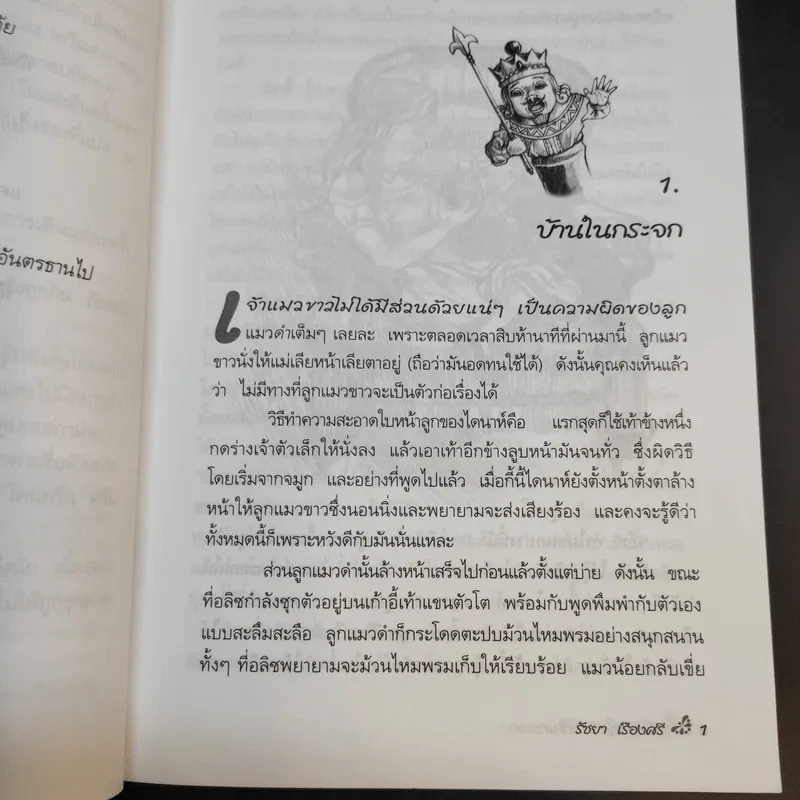 อันตรธานไป
1.
บ้านในกระจก
เจ้าแมวขาวไม่ได้มีส่วนด้วยแน่ๆ เป็นความผิดของลูก
แมวดำเต็มๆ เลยละ เพราะตลอดเวลาสิบห้านาทีที่ผ่านมานี้ ลูกแมว
ขาวนั่งให้แม่เลียหน้าเลียตาอยู่ (ถือว่ามันอดทนใช้ได้) ดังนั้นคุณคงเห็นแล้ว
ว่า ไม่มีทางที่ลูกแมวขาวจะเป็นตัวก่อเรื่องได้
วิธีทำความสะอาดใบหน้าลูกของไดนาห์คือ แรกสุดก็ใช้เท้าข้างหนึ่ง
กดร่างเจ้าตัวเล็กให้นั่งลง แล้วเอาเท้าอีกข้างลูบหน้ามันจนทั่ว ซึ่งผิดวิธี
โดยเริ่มจากจมูก และอย่างที่พูดไปแล้ว เมื่อกี้นี้ไดนาห์ยังตั้งหน้าตั้งตาล้าง
หน้าให้ลูกแมวขาวซึ่งนอนนิ่งและพยายามจะส่งเสียงร้อง และคงจะรู้ดีว่า
ทั้งหมดนี้ก็เพราะหวังดีกับมันนั่นแหละ
ส่วนลูกแมวดำนั้นล้างหน้าเสร็จไปก่อนแล้วตั้งแต่บ่าย ดังนั้น ขณะ
ที่อลิซกำลังซุกตัวอยู่บนเก้าอี้เท้าแขนตัวโต พร้อมกับพูดพึมพำกับตัวเอง
แบบสะลึมสะลือ ลูกแมวดำก็กระโดดตะปบม้วนไหมพรมอย่างสนุกสนาน
ทั้งๆ ที่อลิซพยายามจะม้วนไหมพรมเก็บให้เรียบร้อย แมวน้อยกลับเขี่ย
รัชยา เรืองศรี 1